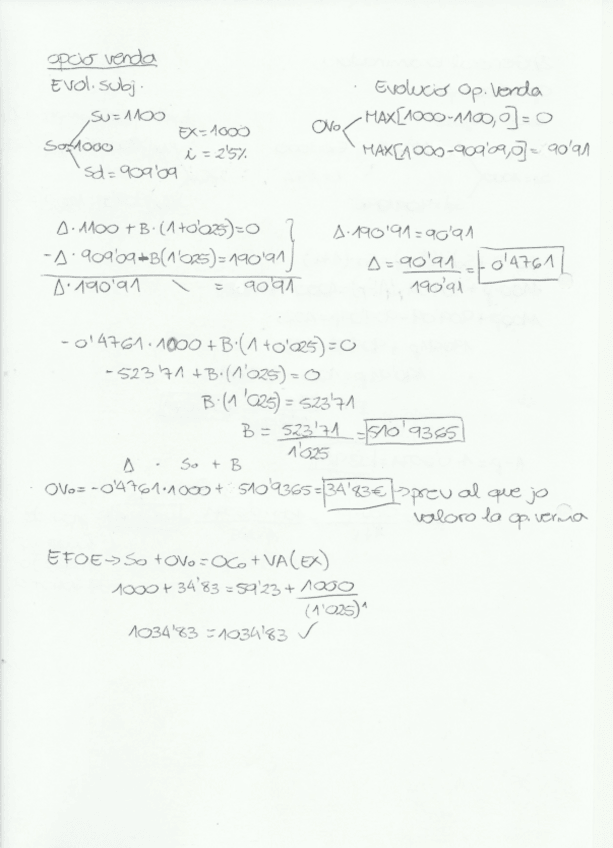 opcio venda
Evol. subj.
Evolucio Op. Venda
Su = 1100
So=1000
Sd = 909'09
EX = 1000
i = 2'5%
OVo
MAX[1000-1100,0] = 0
MAX[1000-909'09,0] = 90'91
Δ·1100 + B·(1+0'025)=0
-Δ·909'09+B(1'025)=190'91
Δ·190'91 \ = 90'91
Δ·190'91=90'91
Δ = 90'91 / 190'91 = -0'4761
-0'4761·1000 + B·(1+0'025)=0
-523'71 + B·(1'025) = 0
B·(1'025) = 523'71
B = 523'71 / 1'025 = 510'9365
Δ · So + B
OVo = -0'4761·1000 + 510'9365 = 34'83€ → preu al que jo
valoro la op.
EFOE → So + OVo = OCo + VA(EX)
1000 + 34'83 = 59'23 + 1000 / (1'025)¹
1034'83 = 1034'83 ✓